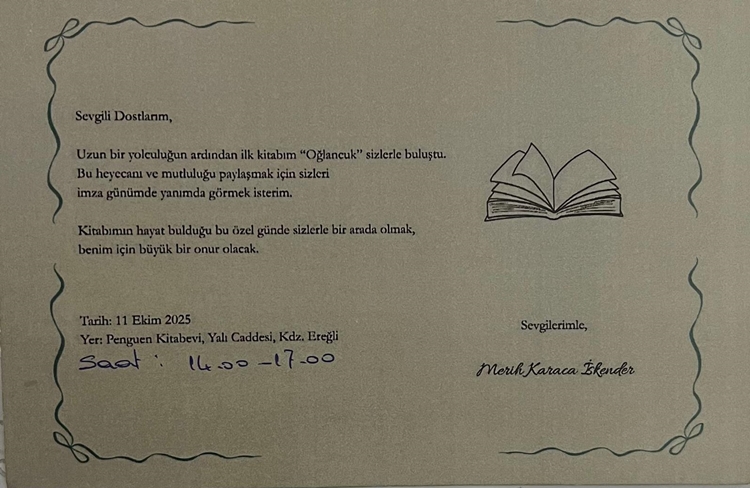 Sevgili Dostlarım,
Uzun bir yolculuğun ardından ilk kitabım “Oğlancuk” sizlerle buluştu.
Bu heyecanı ve mutluluğu paylaşmak için sizleri
imza günümde yanımda görmek isterim.
Kitabımın hayat bulduğu bu özel günde sizlerle bir arada olmak,
benim için büyük bir onur olacak.
Tarih: 11 Ekim 2025
Yer: Penguen Kitabevi, Yalı Caddesi, Kdz. Ereğli
Saat : 14.00 - 17.00
Sevgilerimle,
Merih Karaca İskender